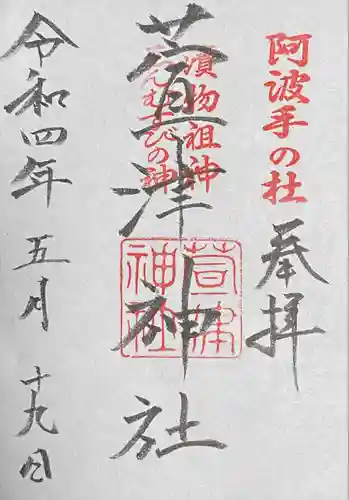 阿波手の杜
奉拝
漬物祖神
えんむすびの神
萱津神社
萱津神社
令和四年
五月
十九日